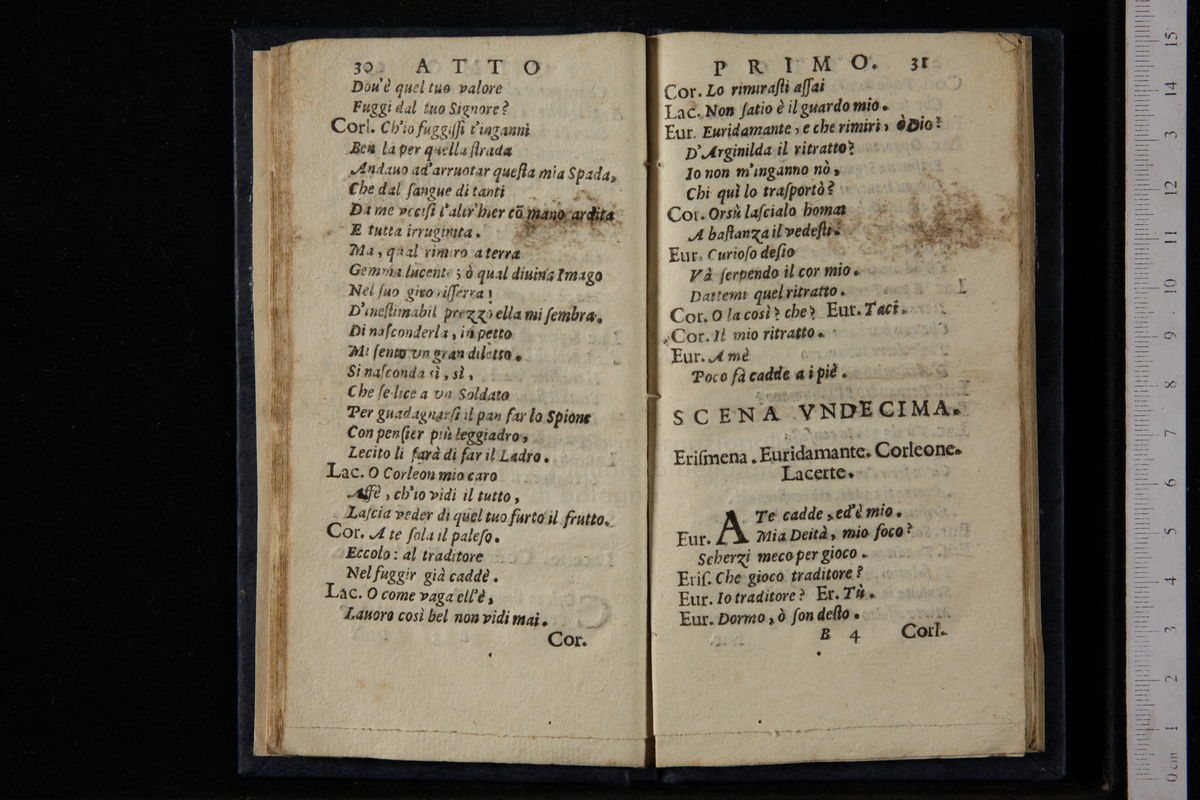 30 ATTO
Dou'è quel tuo valore
Fuggi dal tuo Signore?
Corl. Ch'io fuggissi t'inganni
Ben la per quella strada
Andauo ad'arruotar questa mia Spada,
Che dal sangue di tanti
Da me vccisi l'altr'hier cõ mano ardita
E tutta irruginita.
Ma, qual rimiro a terra
Gemma lucente; ò qual diuina Imago
Nel suo giro risserra!
D'inestimabil prezzò ella mi sembra.
Di nasconderla, in petto
Mi sento vn gran diletto.
Si nasconda sì, sì,
Che se lice a vn Soldato
Per guadagnarsi il pan far lo Spione
Con pensier più leggiadro,
Lecito li sarà di far il Ladro.
Lac. O Corleon mio caro
Affè, ch'io vidi il tutto,
Lascia veder di quel tuo furto il frutto.
Cor. A te sola il paleso.
Eccolo: al traditore
Nel fuggir già caddè.
Lac. O come vaga ell'è,
Lauoro così bel non vidi mai.
Cor.
PRIMO. 31
Cor. Lo rimirasti assai
Lac. Non satio è il guardo mio.
Eur. Euridamante, e che rimiri, ò Dio?
D'Arginilda il ritratto?
Io non m'inganno nò,
Chi quì lo trasportò?
Cor. Orsù lascialo homai
A bastanza il vedesti.
Eur. Curioso desio
Và serpendo il cor mio.
Dattemi quel ritratto.
Cor. O la così? che? Eur. Taci.
Cor. Il mio ritratto.
Eur. A mè
Poco fà cadde a i piè.
SCENA VNDECIMA.
Erismena. Euridamante. Corleone.
Lacerte.
A Te cadde, ed'è mio.
Eur. Mia Deità, mio foco?
Scherzi meco per gioco.
Eris. Che gioco traditore?
Eur. Io traditore? Er. Tù.
Eur. Dormo, ò son desto.
B 4 Corl.
15
14
13
12
11
10
9
8
7
6
5
4
3
2
1
0 cm